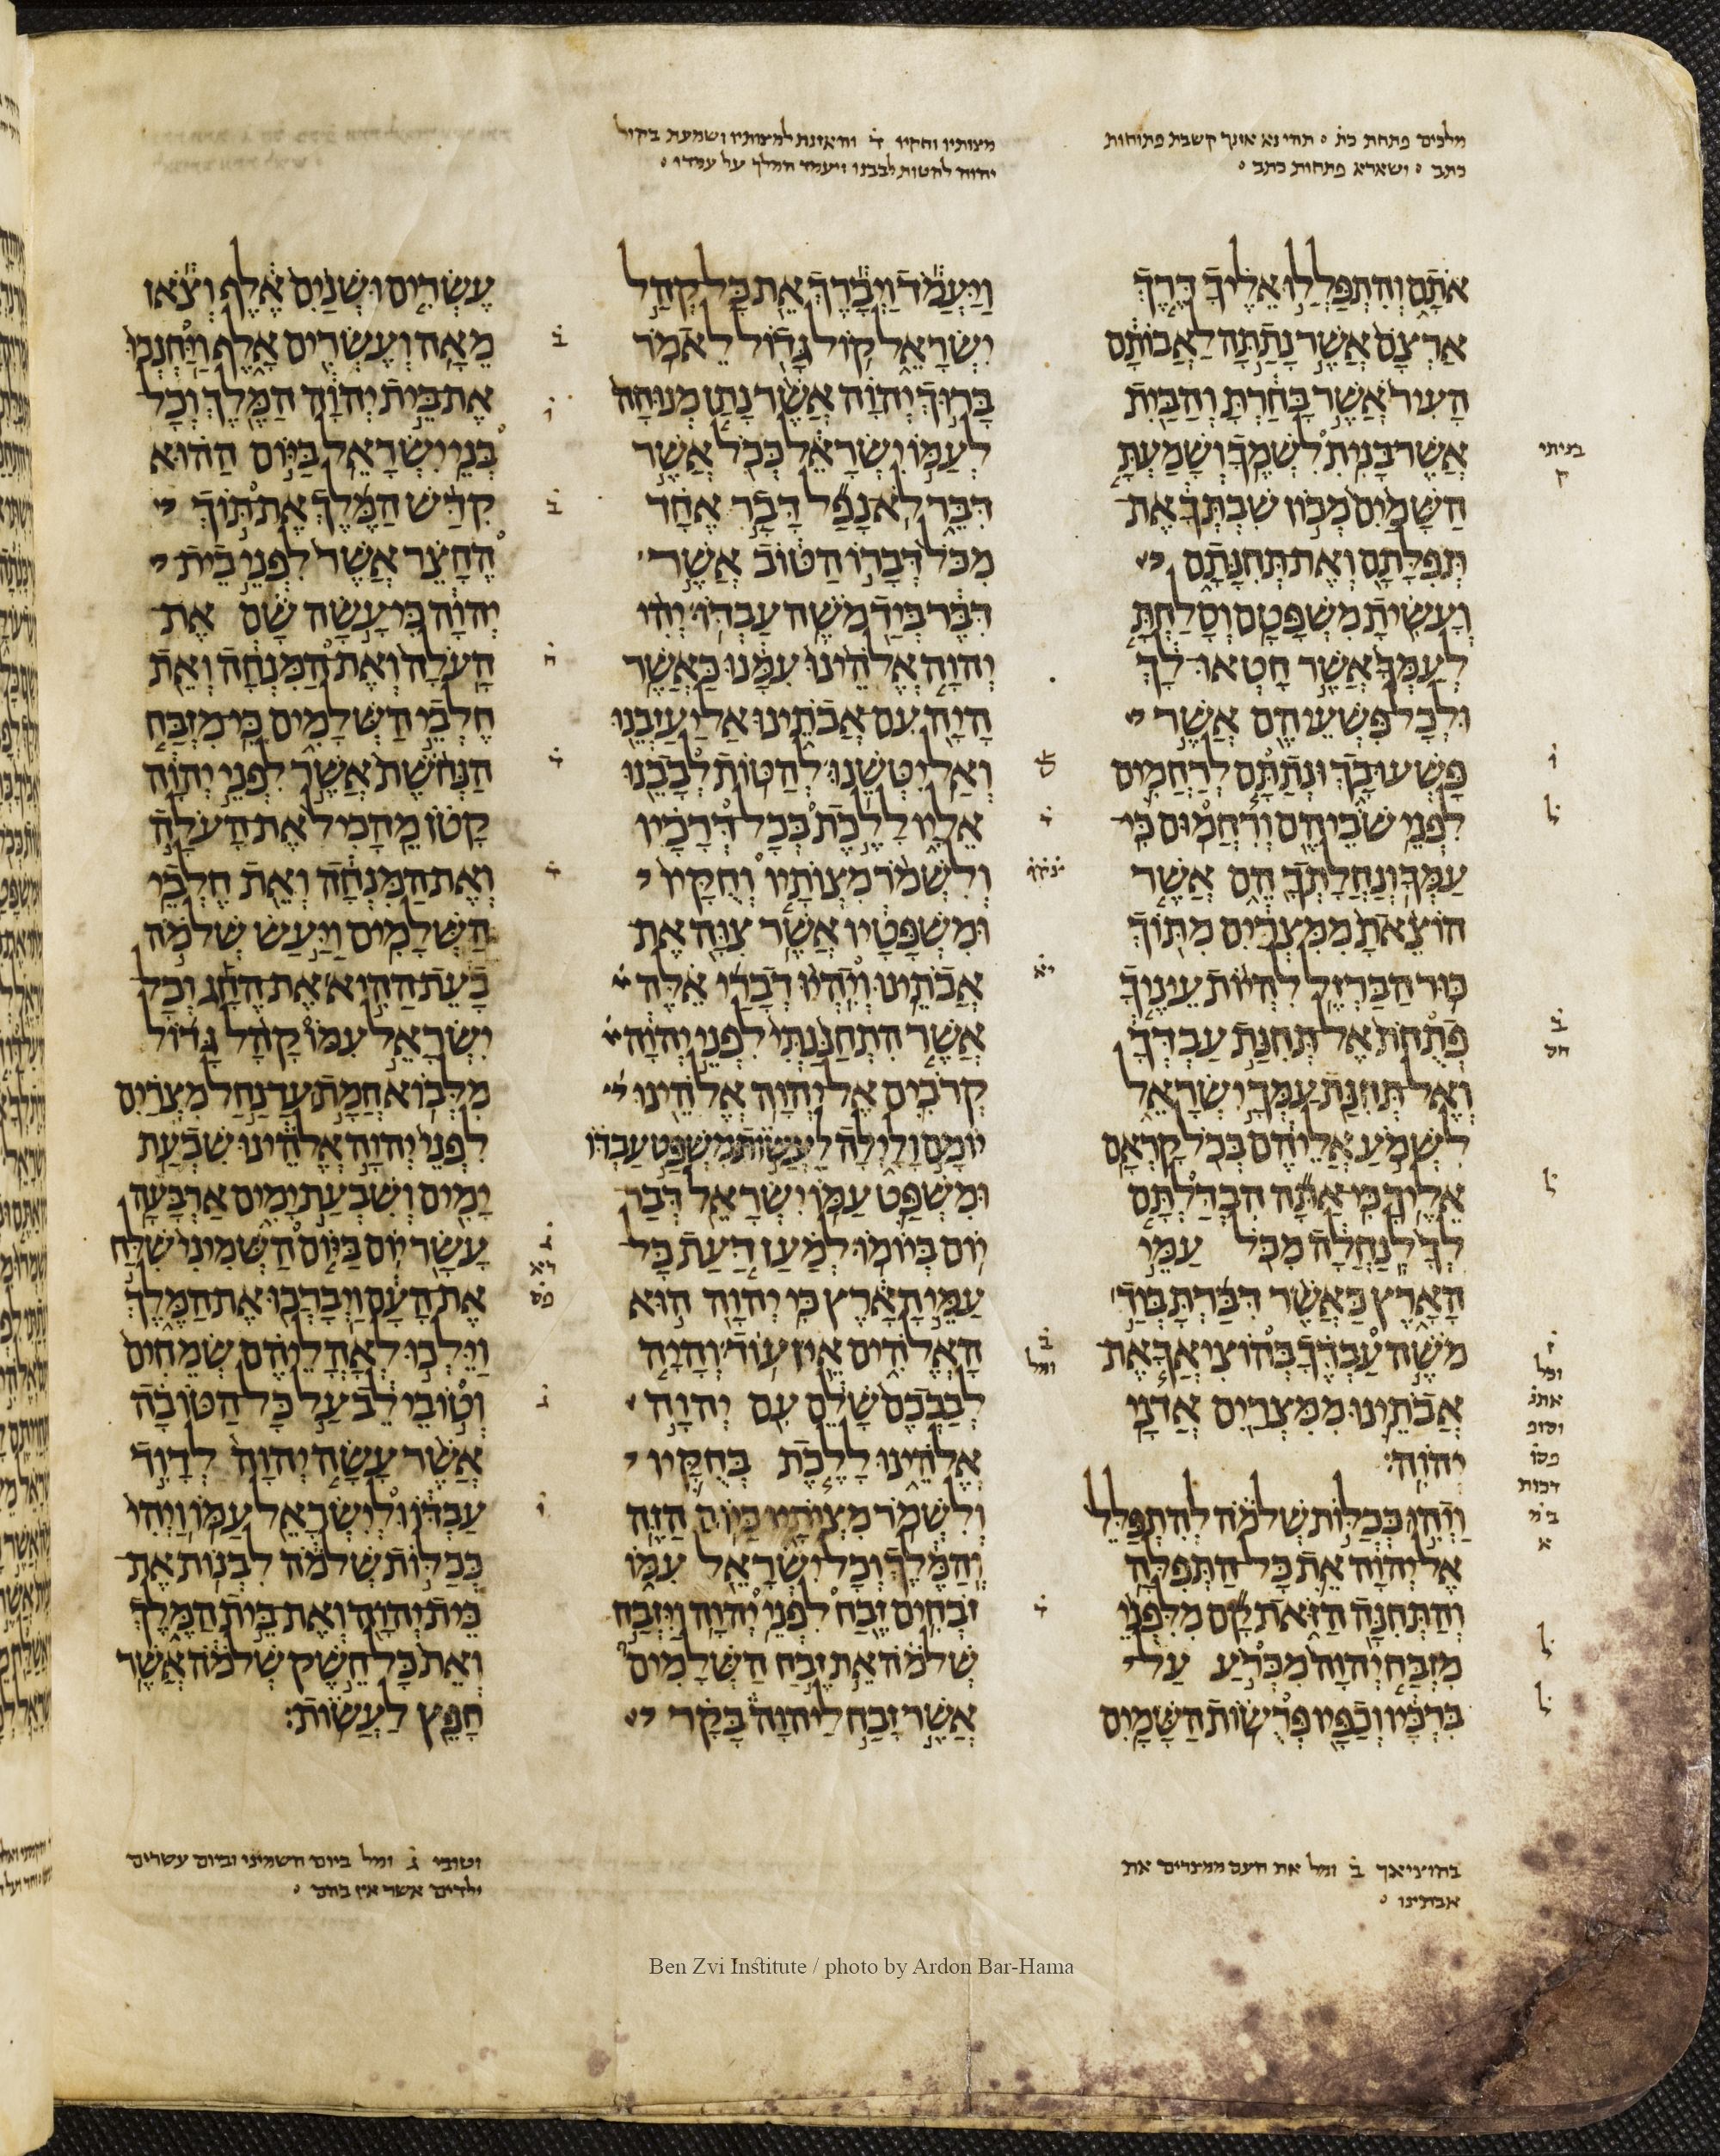 מלכים פתחת כת תהי נא אזנך קשבת פתוחות
כתב ושארא פתחות כתב
אֹתָם וְהִתְפַּלְלוּ אֵלֶיךָ דֶּרֶךְ
אַרְצָם אֲשֶׁר נָתַתָּה לַאֲבוֹתָם
הָעִיר אֲשֶׁר בָּחַרְתָּ וְהַבַּיִת
אֲשֶׁר בָּנִית לִשְׁמֶךָ וְשָׁמַעְתָּ
הַשָּׁמַיִם מְכוֹן שִׁבְתְּךָ אֶת
תְּפִלָּתָם וְאֶת תְּחִנָּתָם
וְעָשִׂיתָ מִשְׁפָּטָם וְסָלַחְתָּ
לְעַמְּךָ אֲשֶׁר חָטְאוּ לָךְ
וּלְכָל פִּשְׁעֵיהֶם אֲשֶׁר
פָּשְׁעוּ בָךְ וּנְתַתָּם לְרַחֲמִים
לִפְנֵי שֹׁבֵיהֶם וְרִחֲמוּם כִּי
עַמְּךָ וְנַחֲלָתְךָ הֵם אֲשֶׁר
הוֹצֵאתָ מִמִּצְרַיִם מִתּוֹךְ
כּוּר הַבַּרְזֶל לִהְיוֹת עֵינֶיךָ
פְתֻחֹת אֶל תְּחִנַּת עַבְדְּךָ
וְאֶל תְּחִנַּת עַמְּךָ יִשְׂרָאֵל
לִשְׁמֹעַ אֲלֵיהֶם בְּכֹל קָרְאָם
אֵלֶיךָ כִּי אַתָּה הִבְדַּלְתָּם
לְךָ לְנַחֲלָה מִכֹּל עַמֵּי
הָאָרֶץ כַּאֲשֶׁר דִּבַּרְתָּ בְּיַד
מֹשֶׁה עַבְדֶּךָ בְּהוֹצִיאֲךָ אֶת
אֲבֹתֵינוּ מִמִּצְרַיִם אֲדֹנָי
יְהוִה׃
וַיְהִי כְּכַלּוֹת שְׁלֹמֹה לְהִתְפַּלֵּל
אֶל יְהוָה אֵת כָּל הַתְּפִלָּה
וְהַתְּחִנָּה הַזֹּאת קָם מִלִּפְנֵי
מִזְבַּח יְהוָה מִכְּרֹעַ עַל
בִּרְכָּיו וְכַפָּיו פְּרֻשׂוֹת הַשָּׁמָיִם
בניתי
ק
בהוציאך ב ומל את העם ממצרים את
אבתינו
מצותיו וחקיו ד והאזנת למצותיו ושמעת בקול
יהוה להטות לבבנו ויעמד המלך על עמדו
וַיַּעֲמֹד וַיְבָרֶךְ אֵת כָּל קְהַל
יִשְׂרָאֵל קוֹל גָּדוֹל לֵאמֹר
בָּרוּךְ יְהוָה אֲשֶׁר נָתַן מְנוּחָה
לְעַמּוֹ יִשְׂרָאֵל כְּכֹל אֲשֶׁר
דִּבֵּר לֹא נָפַל דָּבָר אֶחָד
מִכֹּל דְּבָרוֹ הַטּוֹב אֲשֶׁר
דִּבֶּר בְּיַד מֹשֶׁה עַבְדּוֹ יְהִי
יְהוָה אֱלֹהֵינוּ עִמָּנוּ כַּאֲשֶׁר
הָיָה עִם אֲבֹתֵינוּ אַל יַעַזְבֵנוּ
וְאַל יִטְּשֵׁנוּ לְהַטּוֹת לְבָבֵנוּ
אֵלָיו לָלֶכֶת בְּכָל דְּרָכָיו
וְלִשְׁמֹר מִצְוֹתָיו וְחֻקָּיו
וּמִשְׁפָּטָיו אֲשֶׁר צִוָּה אֶת
אֲבֹתֵינוּ וְיִהְיוּ דְבָרַי אֵלֶּה
אֲשֶׁר הִתְחַנַּנְתִּי לִפְנֵי יְהוָה
קְרֹבִים אֶל יְהוָה אֱלֹהֵינוּ
יוֹמָם וָלָיְלָה לַעֲשׂוֹת מִשְׁפַּט עַבְדּוֹ
וּמִשְׁפַּט עַמּוֹ יִשְׂרָאֵל דְּבַר
יוֹם בְּיוֹמוֹ לְמַעַן דַּעַת כָּל
עַמֵּי הָאָרֶץ כִּי יְהוָה הוּא
הָאֱלֹהִים אֵין עוֹד וְהָיָה
לְבַבְכֶם שָׁלֵם עִם יְהוָה
אֱלֹהֵינוּ לָלֶכֶת בְּחֻקָּיו
וְלִשְׁמֹר מִצְוֹתָיו כַּיּוֹם הַזֶּה
וְהַמֶּלֶךְ וְכָל יִשְׂרָאֵל עִמּוֹ
זֹבְחִים זֶבַח לִפְנֵי יְהוָה וַיִּזְבַּח
שְׁלֹמֹה אֵת זֶבַח הַשְּׁלָמִים
אֲשֶׁר זָבַח לַיהוָה בָּקָר
עֶשְׂרִים וּשְׁנַיִם אֶלֶף וְצֹאן
מֵאָה וְעֶשְׂרִים אָלֶף וַיַּחְנְכוּ
אֶת בֵּית יְהוָה הַמֶּלֶךְ וְכָל
בְּנֵי יִשְׂרָאֵל בַּיּוֹם הַהוּא
קִדַּשׁ הַמֶּלֶךְ אֶת תּוֹךְ
הֶחָצֵר אֲשֶׁר לִפְנֵי בֵית
יְהוָה כִּי עָשָׂה שָׁם אֶת
הָעֹלָה וְאֶת הַמִּנְחָה וְאֵת
חֶלְבֵי הַשְּׁלָמִים כִּי מִזְבַּח
הַנְּחֹשֶׁת אֲשֶׁר לִפְנֵי יְהוָה
קָטֹן מֵהָכִיל אֶת הָעֹלָה
וְאֶת הַמִּנְחָה וְאֵת חֶלְבֵי
הַשְּׁלָמִים וַיַּעַשׂ שְׁלֹמֹה
בָעֵת הַהִיא אֶת הֶחָג וְכָל
יִשְׂרָאֵל עִמּוֹ קָהָל גָּדוֹל
מִלְּבוֹא חֲמָת עַד נַחַל מִצְרַיִם
לִפְנֵי יְהוָה אֱלֹהֵינוּ שִׁבְעַת
יָמִים וְשִׁבְעַת יָמִים אַרְבָּעָה
עָשָׂר יוֹם בַּיּוֹם הַשְּׁמִינִי שִׁלַּח
אֶת הָעָם וַיְבָרֲכוּ אֶת הַמֶּלֶךְ
וַיֵּלְכוּ לְאָהֳלֵיהֶם שְׂמֵחִים
וְטוֹבֵי לֵב עַל כָּל הַטּוֹבָה
אֲשֶׁר עָשָׂה יְהוָה לְדָוִד
עַבְדּוֹ וּלְיִשְׂרָאֵל עַמּוֹ וַיְהִי
כְּכַלּוֹת שְׁלֹמֹה לִבְנוֹת אֶת
בֵּית יְהוָה וְאֶת בֵּית הַמֶּלֶךְ
וְאֵת כָּל חֵשֶׁק שְׁלֹמֹה אֲשֶׁר
חָפֵץ לַעֲשׂוֹת׃
וטובי ג ומל ביום השמיני וביום עשרים
ילדים אשר אין בהם
Ben Zvi Institute / photo by Ardon Bar-Hama